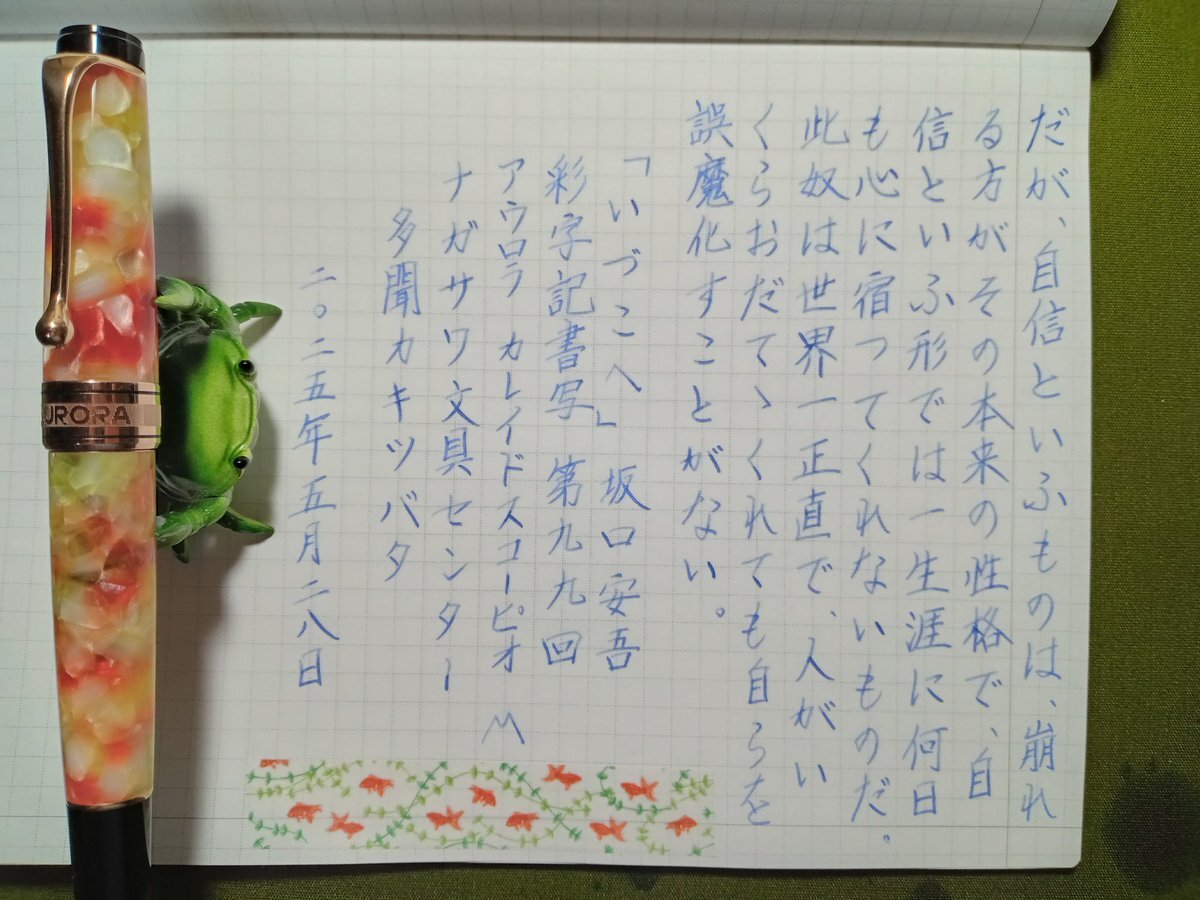 だが、自信といふものは、崩れ
る方がその本来の性格で、自
信といふ形では一生涯に何日
も心に宿つてくれないものだ。
此奴は世界一正直で、人がい
くらおだてゝくれても自らを
誤魔化すことがない。
「いづこへ」 坂口安吾
彩字記書写 第九九回
アウロラ カレイドスコーピオ M
ナガサワ文具センター
多聞カキツバタ
二〇二五年五月二八日
URORA